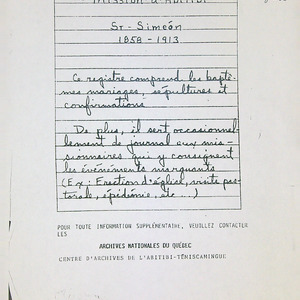 MISSION D'ABITIBI
St-Siméon
1858-1913
Ce registre comprend les baptê-
mes mariages, sépultures et
confirmations
De plus, il sert occasionnel-
lement de journal aux mis-
sionnaires qui y consignent
les événements marquants
(Ex: Erection d'église, visite pas-
torale, épidémie, etc...)
POUR TOUTE INFORMATION SUPPLÉMENTAIRE, VEUILLEZ CONTACTER
LES
ARCHIVES NATIONALES DU QUÉBEC
CENTRE D'ARCHIVES DE L'ABITIBI-TÉMISCAMINGUE